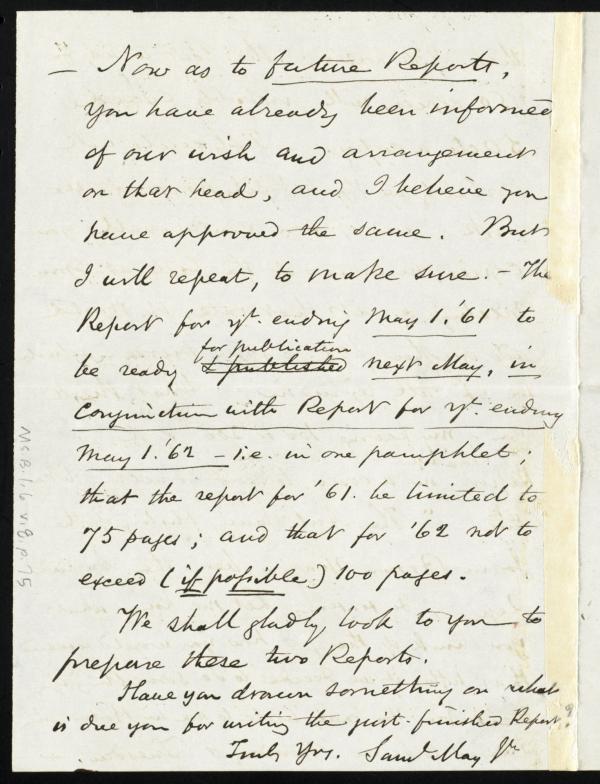 — Now as to future Reports,
you have already been informed
of our wish and arrangement
on that head, and I believe you
have approved the same. But
I will repeat, to make sure. — The
Report for yr. ending May 1. '61 to
for publication
be ready & published next May, in
conjunction with Report for yr. ending
May 1. '62 — i.e. in one pamphlet;
that the report for '61. be limited to
75 pages; and that for '62 not to
exceed (if possible) 100 pages.
We shall gladly look to you to
prepare these two Reports.
Have you drawn something on what
is due you for writing the just-finished Report?
Truly Yrs. Saml. May Jr.
Ms B.1.6 v.8, p.75